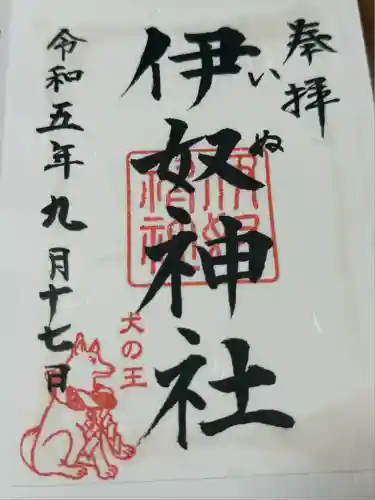 奉拝
伊奴神社
いぬ
犬の王
令和五年九月十七日